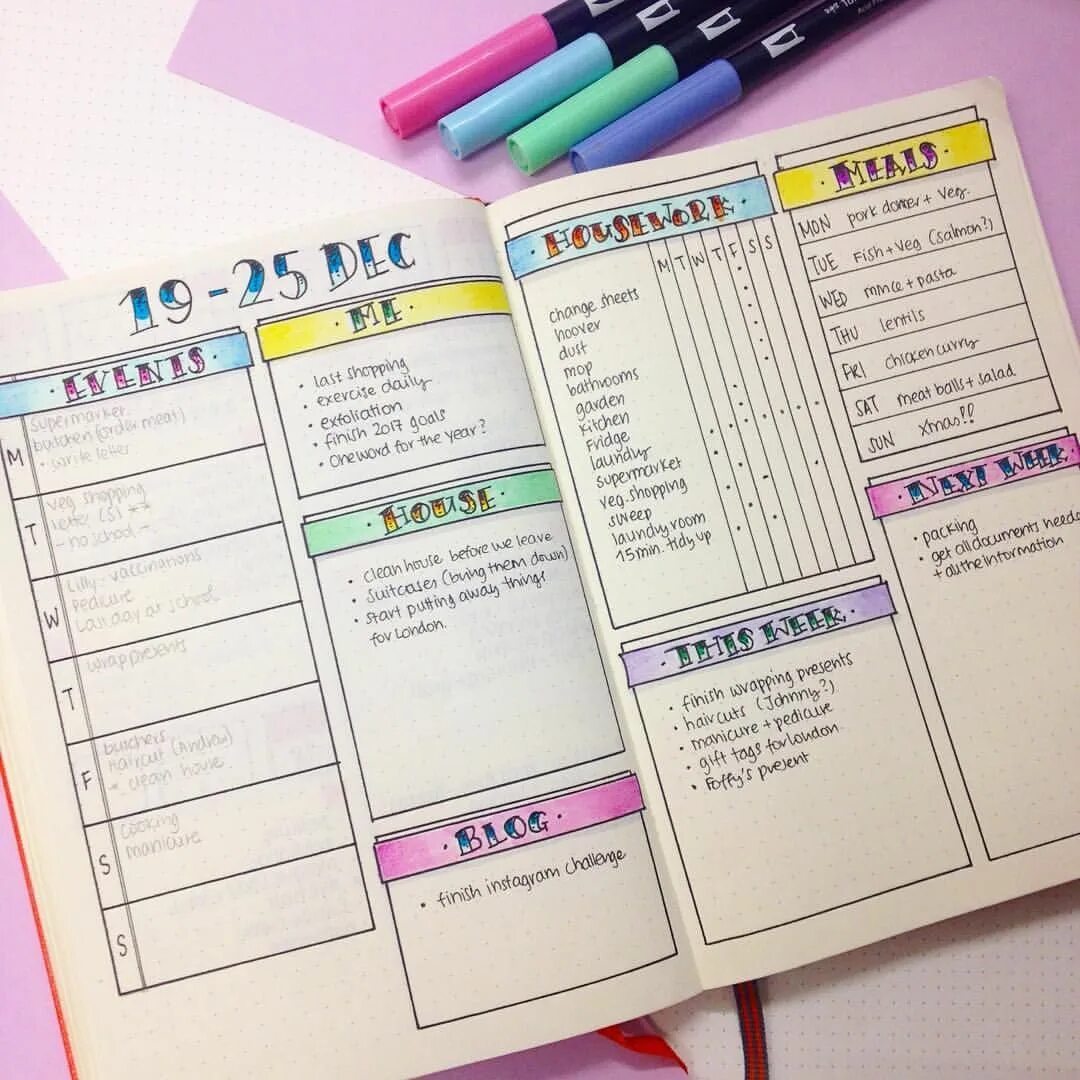 19-25 DEC
·EVENTS·
M
supermarket
butcher (order meat)
· write letter
T
veg shopping
letter (S) **
- no school -
W
Lilly - vaccinations
Pedicure
Last day at school
T
wrap presents
F
butchers
Haircut (Andrew)
clean house
S
cooking
manicure
S
·ME·
• last shopping
• exercise daily
• exfoliation
• finish 2017 goals
• one word for the year?
·HOUSE·
• clean house before we leave
• suitcases (bring them down)
• start putting away things
for London.
·BLOG·
• finish instagram challenge
·HOUSEWORK·
M T W T F S S
change sheets
hoover
dust
mop
bathrooms
garden
kitchen
Fridge
laundry
supermarket
veg. shopping
sweep
laundry room
15 min. tidy up
·MEALS·
MON pork donner + Veg.
TUE Fish + Veg (salmon?)
WED mince + pasta
THU lentils
FRI chicken curry
SAT meat balls + salad
SUN Xmas!!
·THIS WEEK·
• finish wrapping presents
• haircuts (Johnny?)
• manicure + pedicure
• gift tags for London
• Foffy's present
·NEXT WEEK·
• packing
• get all documents neede
+ all the information